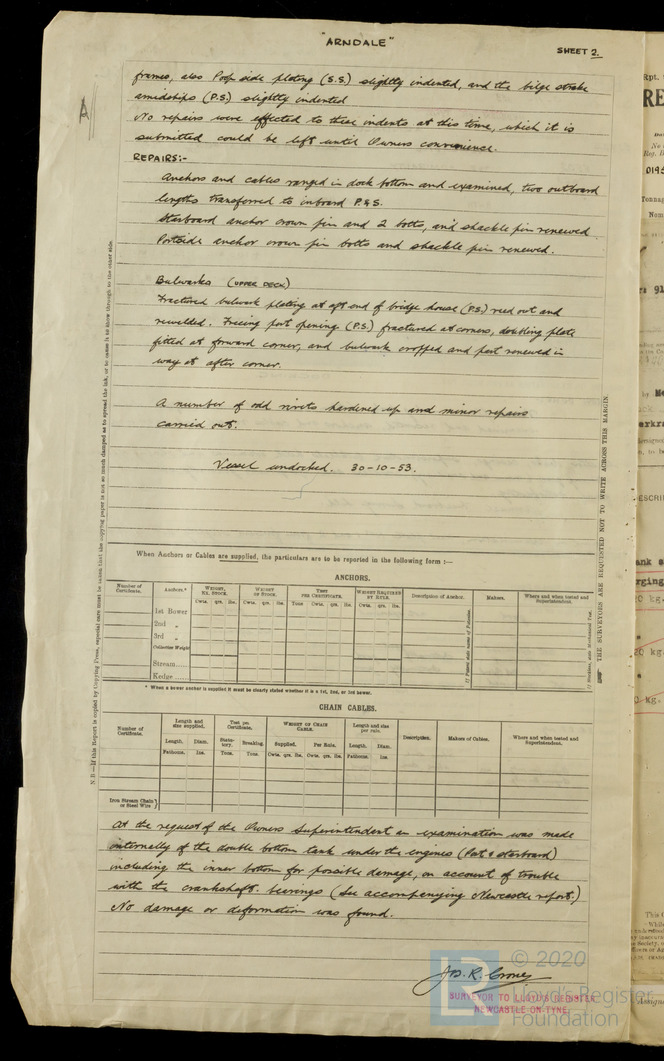 "ARNDALE"
SHEET 2.
A
frames, also Poop side plating (S.S.) slightly indented, and the bilge strake
amidships (P.S.) slightly indented
No repairs were effected to these indents at this time, which it is
submitted could be left until Owners convenience.
REPAIRS:-
Anchors and cables ranged in dock bottom and examined, two outboard
lengths transferred to inboard P.&S.
Starboard anchor crown pin and 2 bolts, and shackle pin renewed
Portside anchor crown pin bolts and shackle pin renewed.
Bulwarks (UPPER DECK)
Fractured bulwark plating at aft end of bridge house (P.S.) veed out and
rewelded. Freeing port opening (P.S.) fractured at corners, doubling plate
fitted at forward corner, and bulwark cropped and part renewed in
way at after corner.
A number of odd rivets hardened up and minor repairs
carried out.
Vessel undocked. 30-10-53.
When Anchors or Cables are supplied, the particulars are to be reported in the following form :—
ANCHORS.
Number of Certificate. Anchors.* WEIGHT, EX. STOCK. WEIGHT OF STOCK. TEST PER CERTIFICATE. WEIGHT REQUIRED BY RULE. Description of Anchor. Makers. Where and when tested and Superintendent.
Cwts. qrs. lbs. Cwts. qrs. lbs. Tons. Cwts. qrs. lbs. Cwts. qrs. lbs.
1st Bower
2nd "
3rd "
Collective Weight
Stream
Kedge
* When a bower anchor is supplied it must be clearly stated whether it is a 1st, 2nd, or 3rd bower.
CHAIN CABLES.
Number of Certificate. Length and size supplied. Test per Certificate. WEIGHT OF CHAIN CABLE. Length and size per rule. Description. Makers of Cables. Where and when tested and Superintendent.
Length. Diam. Statutory. Breaking. Supplied. Per Rule. Length. Diam.
Fathoms. Ins. Tons. Tons. Cwts. qrs. lbs. Cwts. qrs. lbs. Fathoms. Ins.
Iron Stream Chain
or Steel Wire
At the request of the Owners Superintendent an examination was made
internally of the double bottom tank under the engines (Port & starboard)
including the inner bottom for possible damage, on account of trouble
with the crankshaft bearings (See accompanying Newcastle report.)
No damage or deformation was found.
Jos. R. Croney
SURVEYOR TO LLOYD'S REGISTER
NEWCASTLE-ON-TYNE.
LR © 2020
Lloyd's Register
Foundation
N.B—If this Report is copied by Copying Press, especial care must be taken that the copying paper is not so much damped as to spread the ink, or to cause it to show through to the other side.
THE SURVEYORS ARE REQUESTED NOT TO WRITE ACROSS THIS MARGIN.
Rpt.
RE